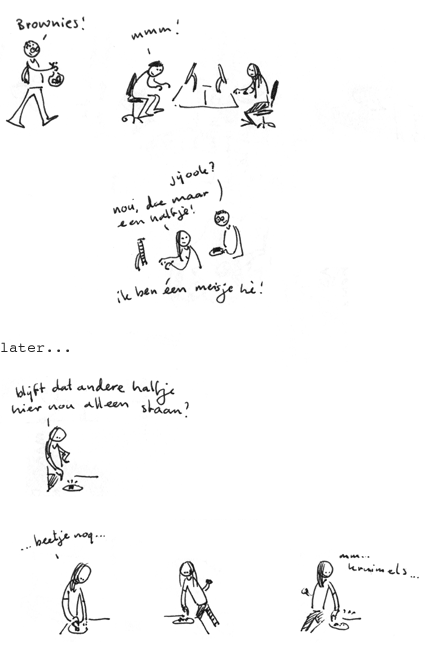 Brownies!
mmm!
jij ook?
nou, doe maar
een halfje!
ik ben één meisje hè!
later...
blijft dat andere halfje
hier nou alleen staan?
...beetje nog...
mm...
kruimels...